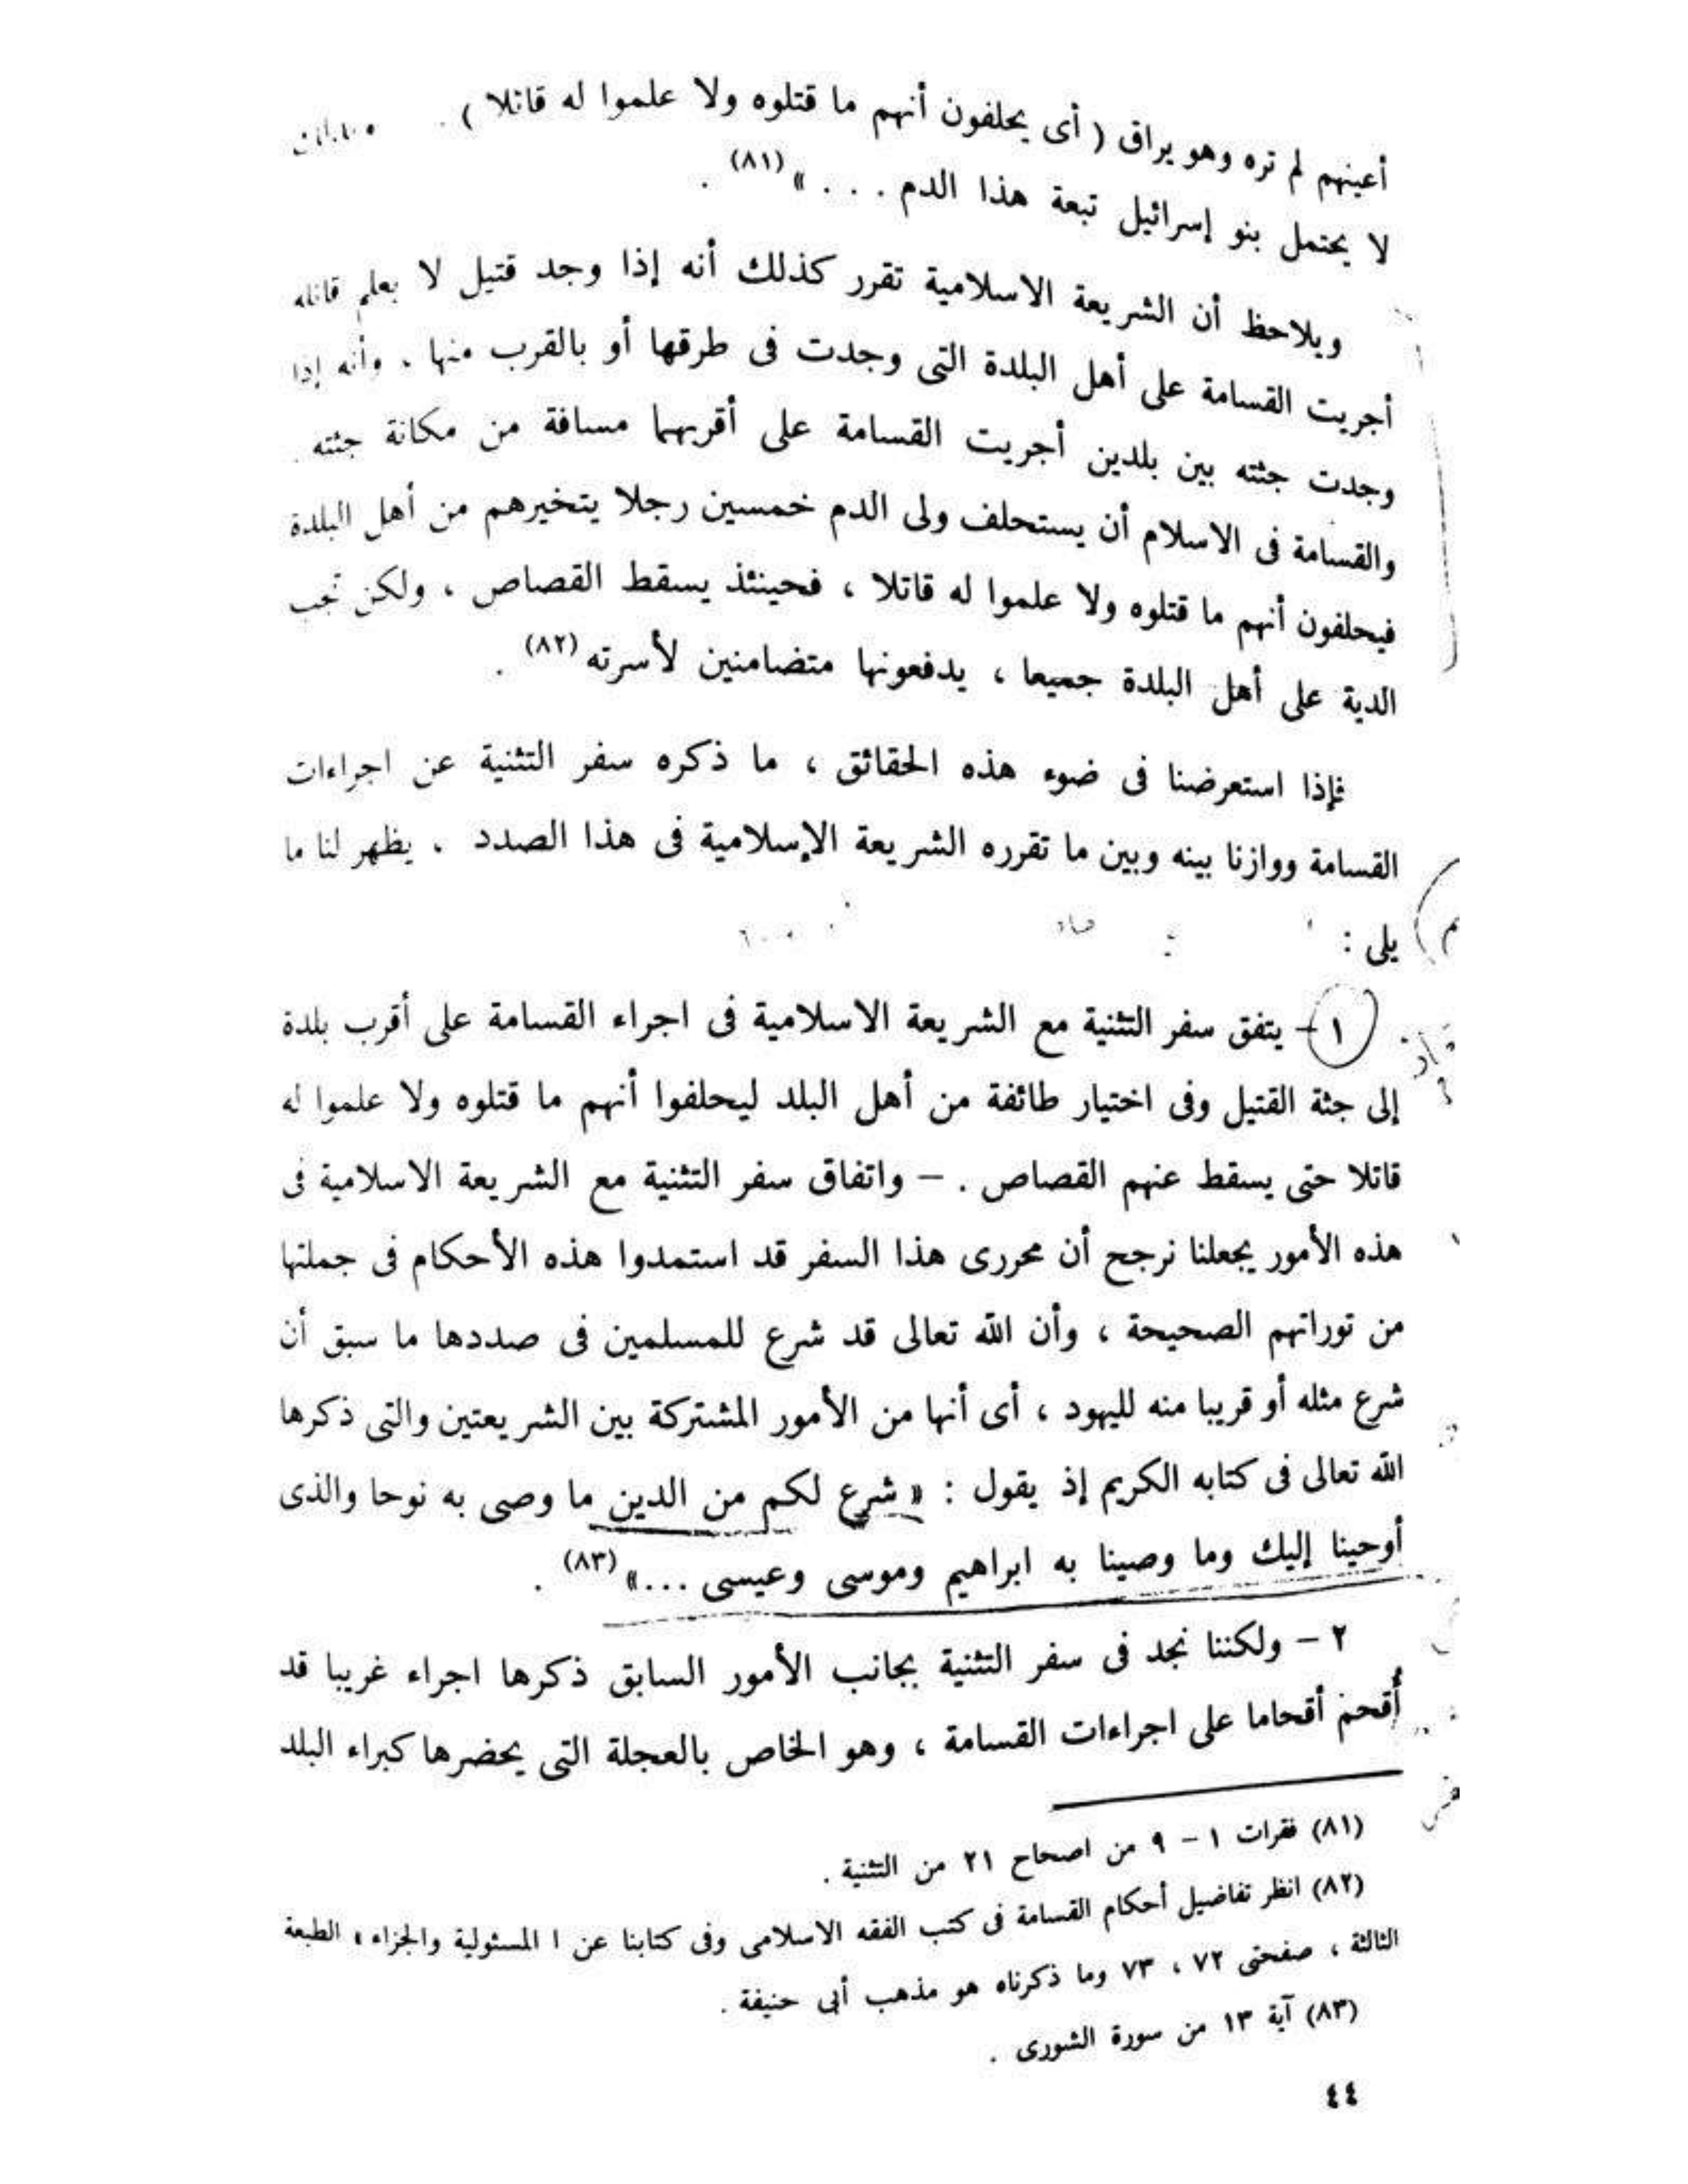 أعينهم لم تره وهو يراق ( أى يحلفون أنهم ما قتلوه ولا علموا له قاتلا ) .
لا يحتمل بنو إسرائيل تبعة هذا الدم . . . » (٨١) .
ويلاحظ أن الشريعة الاسلامية تقرر كذلك أنه إذا وجد قتيل لا يعلم قاتله
أجريت القسامة على أهل البلدة التى وجدت فى طرقها أو بالقرب منها . وأنه إذا
وجدت جثته بين بلدين أجريت القسامة على أقربهما مسافة من مكانة جثته .
والقسامة فى الاسلام أن يستحلف ولى الدم خمسين رجلا يتخيرهم من أهل البلدة
فيحلفون أنهم ما قتلوه ولا علموا له قاتلا ، فحينئذ يسقط القصاص ، ولكن تجب
الدية على أهل البلدة جميعا ، يدفعونها متضامنين لأسرته (٨٢) .
فإذا استعرضنا فى ضوء هذه الحقائق ، ما ذكره سفر التثنية عن اجراءات
القسامة ووازنا بينه وبين ما تقرره الشريعة الإسلامية فى هذا الصدد . يظهر لنا ما
يلى :
١ – يتفق سفر التثنية مع الشريعة الاسلامية فى اجراء القسامة على أقرب بلدة
إلى جثة القتيل وفى اختيار طائفة من أهل البلد ليحلفوا أنهم ما قتلوه ولا علموا له
قاتلا حتى يسقط عنهم القصاص . – واتفاق سفر التثنية مع الشريعة الاسلامية فى
هذه الأمور يجعلنا نرجح أن محررى هذا السفر قد استمدوا هذه الأحكام فى جملتها
من توراتهم الصحيحة ، وأن الله تعالى قد شرع للمسلمين فى صددها ما سبق أن
شرع مثله أو قريبا منه لليهود ، أى أنها من الأمور المشتركة بين الشريعتين والتى ذكرها
الله تعالى فى كتابه الكريم إذ يقول : « شرع لكم من الدين ما وصى به نوحا والذى
أوحينا إليك وما وصينا به ابراهيم وموسى وعيسى ...» (٨٣) .
٢ – ولكننا نجد فى سفر التثنية بجانب الأمور السابق ذكرها اجراء غريبا قد
أُقحم أقحاما على اجراءات القسامة ، وهو الخاص بالعجلة التى يحضرها كبراء البلد
(٨١) فقرات ١ – ٩ من اصحاح ٢١ من التثنية .
(٨٢) انظر تفاضيل أحكام القسامة فى كتب الفقه الاسلامى وفى كتابنا عن ا المسئولية والجزاء » الطبعة
الثالثة ، صفحتى ٧٢ ، ٧٣ وما ذكرناه هو مذهب أبى حنيفة .
(٨٣) آية ١٣ من سورة الشورى .
٤٤